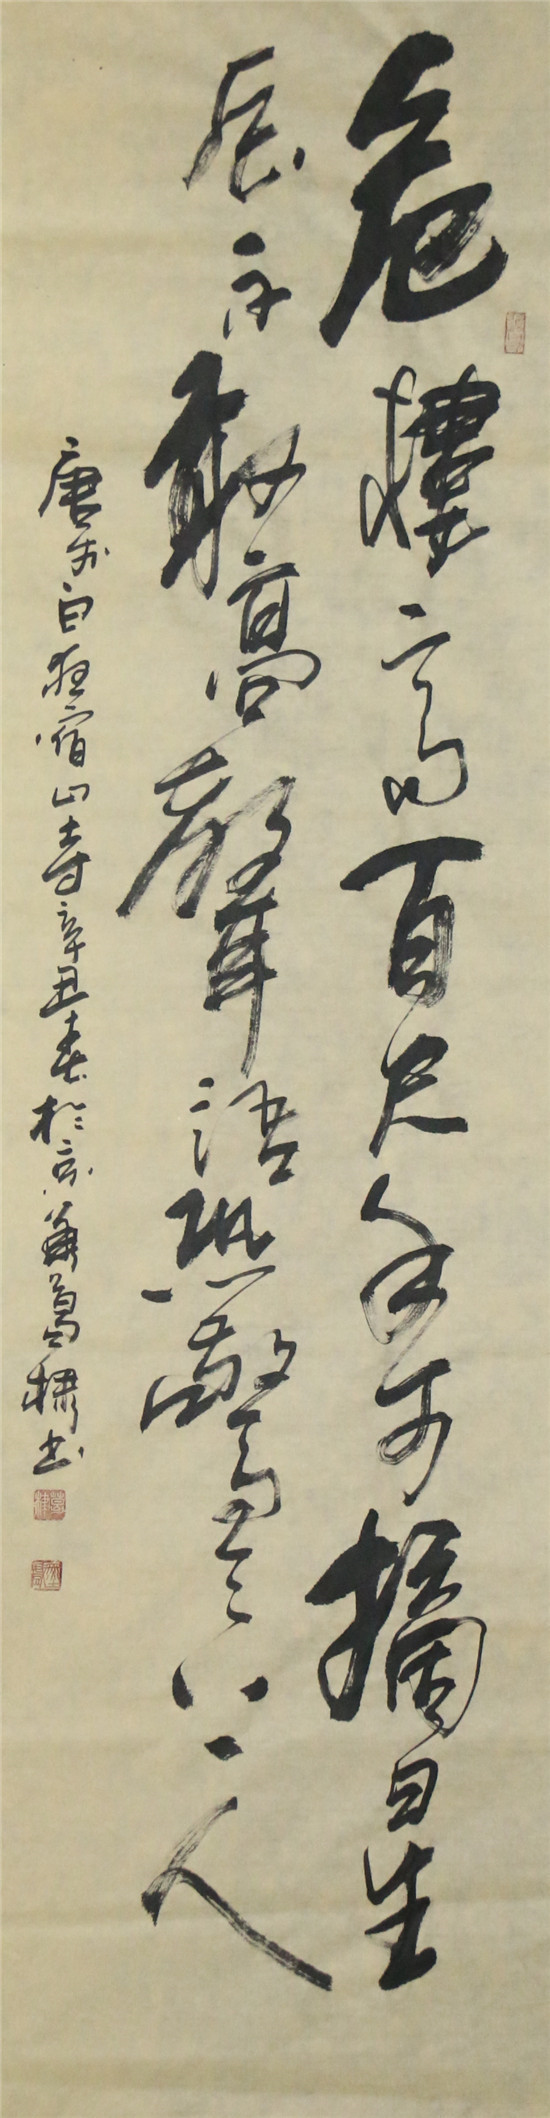 危樓高百尺手可摘星
辰不敢高聲語恐驚天上人
唐李白夜宿山寺辛丑春於京華葛棣书